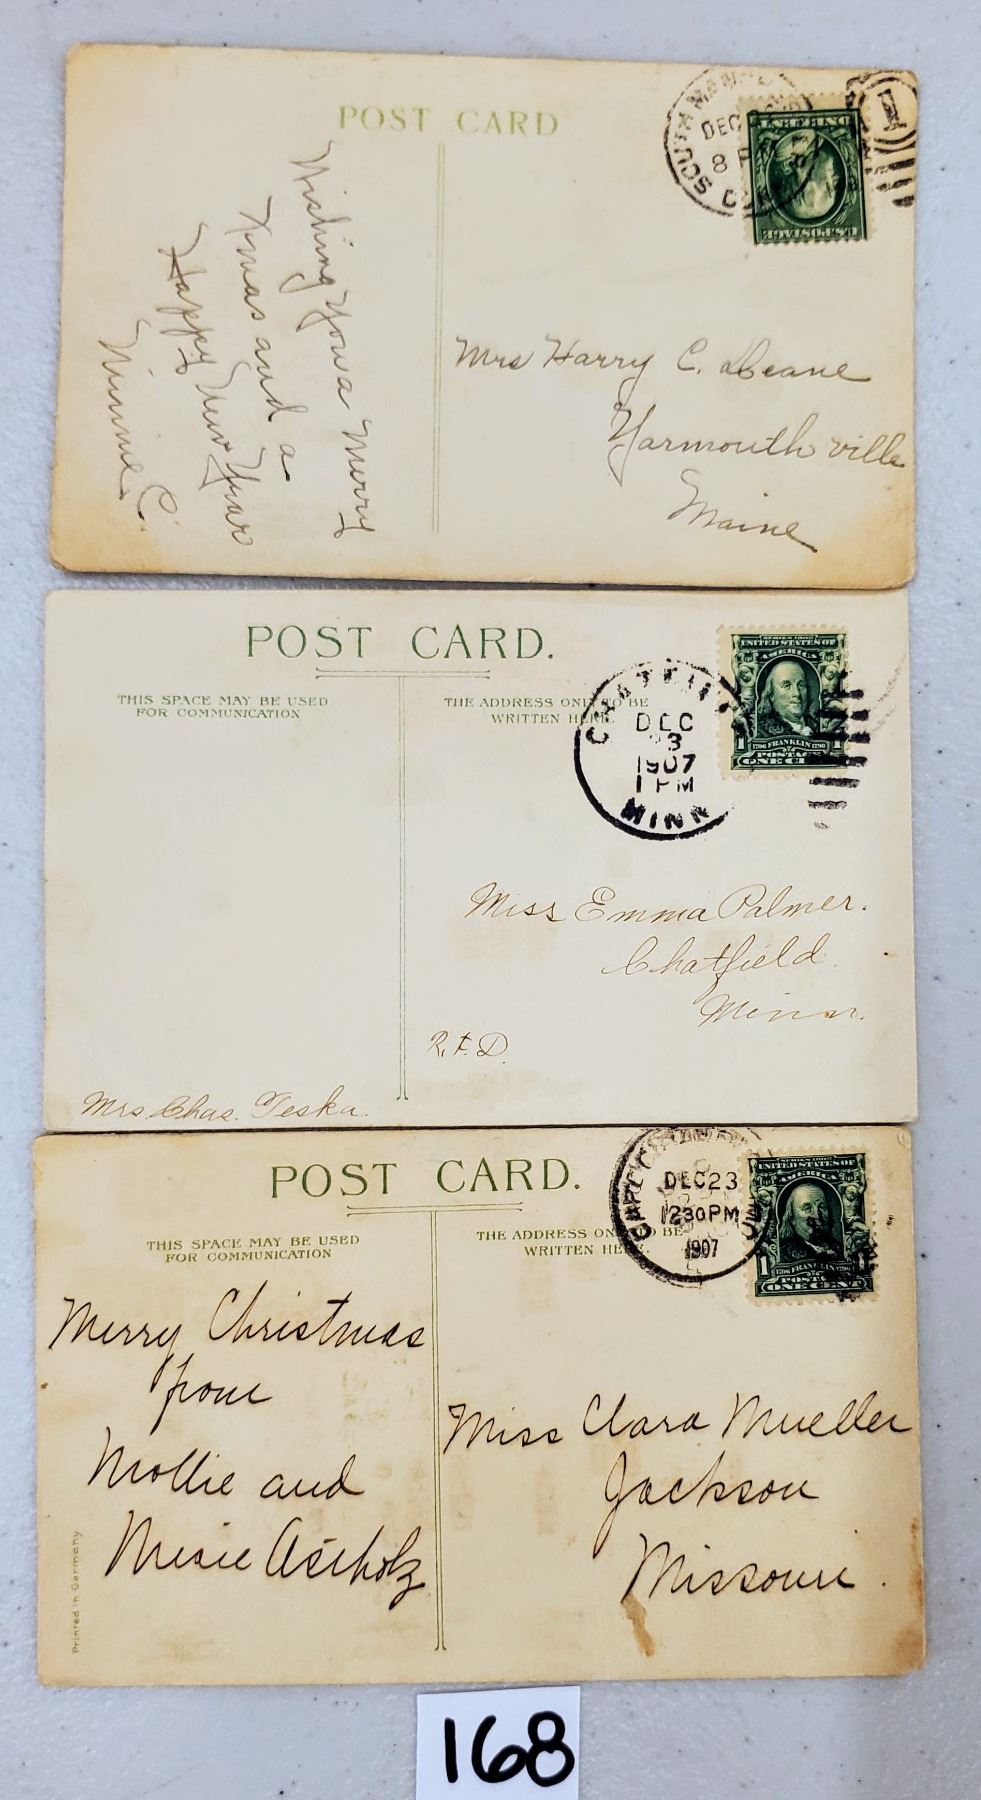 POST CARD
Wishing you a Merry
Xmas and a
Happy New Year
Minnie C.
SOUTH MAN
DEC
8
CONN
1
U.S.POSTAGE
Mrs Harry C. Deane
Yarmouthville
Maine
POST CARD.
THIS SPACE MAY BE USED
FOR COMMUNICATION
THE ADDRESS ONLY TO BE
WRITTEN HERE.
CHATFI
DEC
23
1907
1 PM
MINN
SERIES 1902
UNITED STATES OF
AMERICA
1706 FRANKLIN 1790
1
POSTAGE
ONE CE
Miss Emma Palmer.
Chatfield
Minn.
R.F.D.
Mrs. Chas. Teska.
POST CARD.
THIS SPACE MAY BE USED
FOR COMMUNICATION
THE ADDRESS ONLY TO BE
WRITTEN HERE.
CAPE
DEC 23
1230PM
1907
SERIES 1902
UNITED STATES OF
AMERICA
1 1
1706 FRANKLIN 1790
POSTAGE
ONE CENT
Merry Christmas
from
Mollie and
Astholz
Miss Clara Mueller
Jackson
Missouri.
Printed in Germany
168